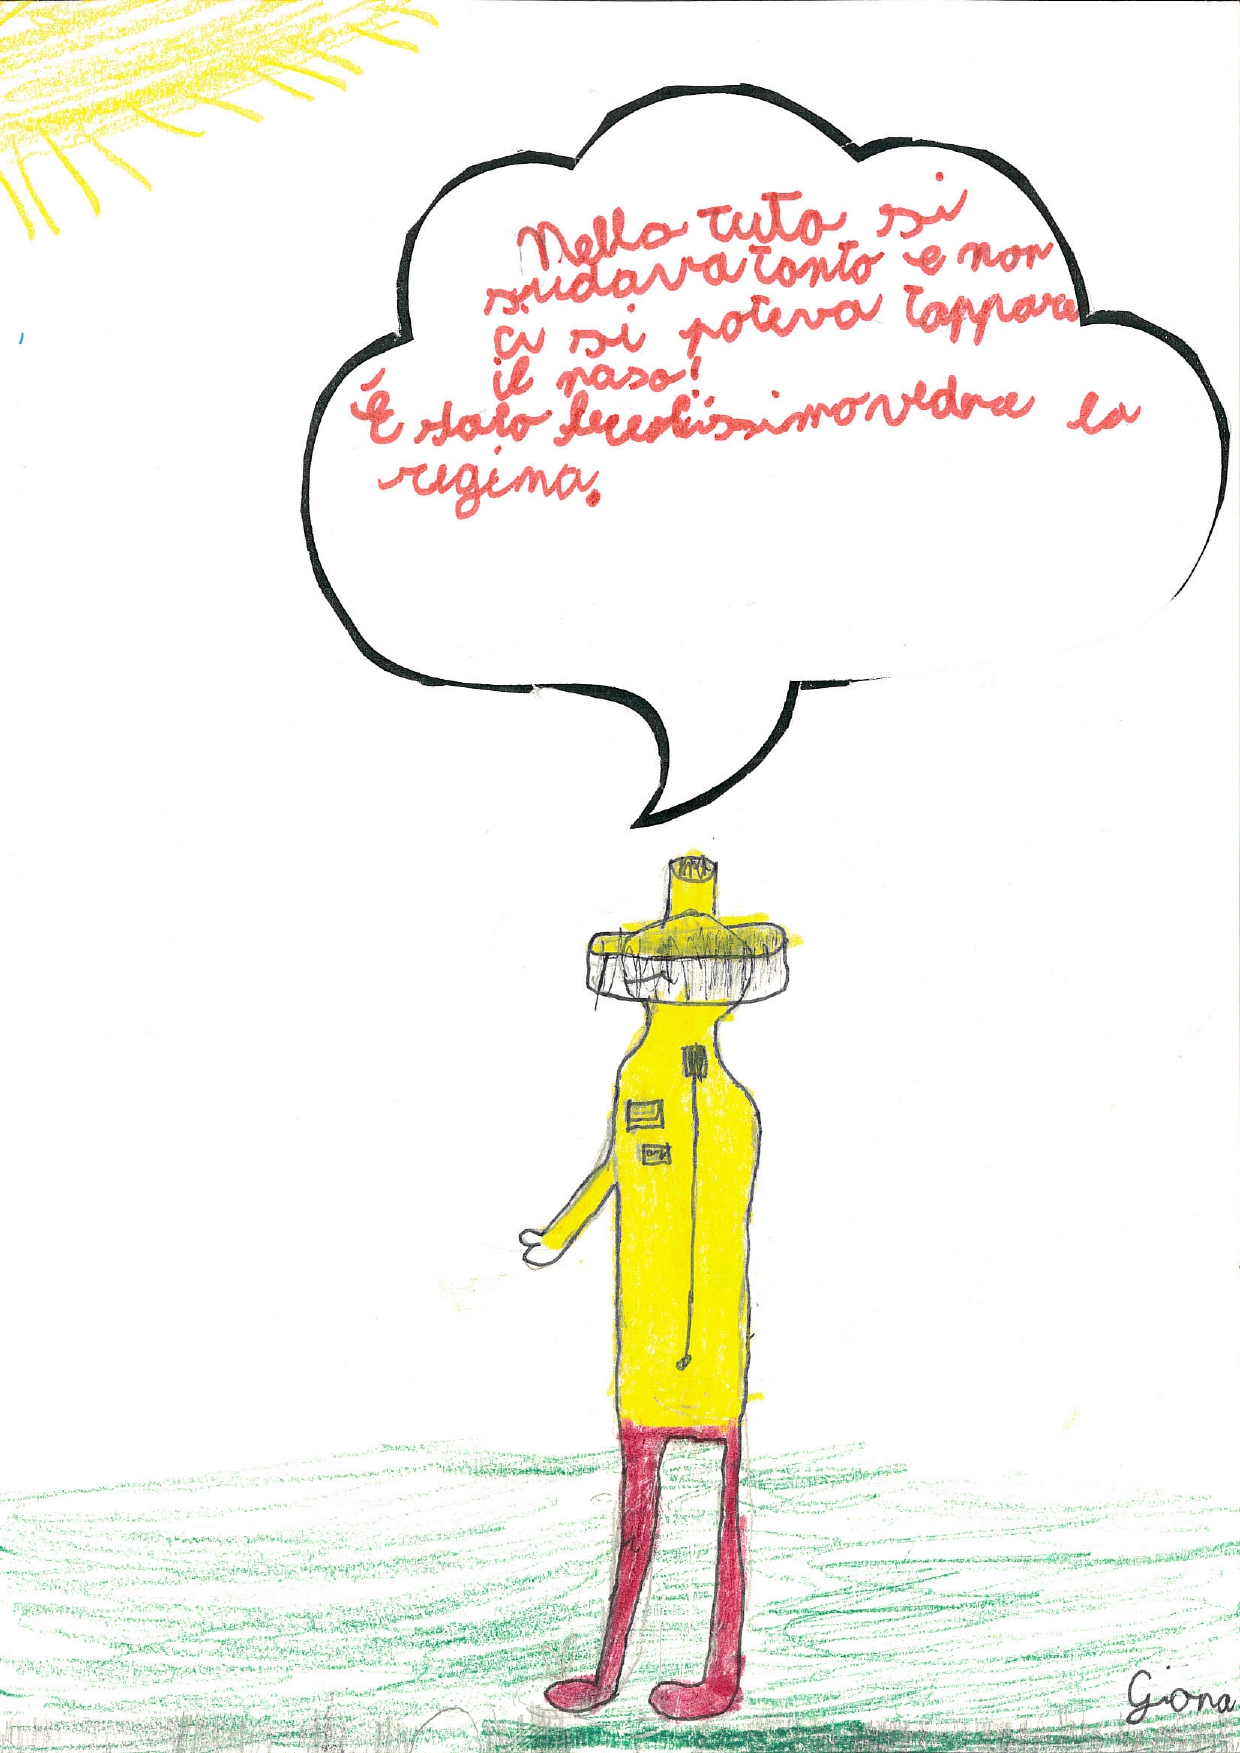 Nella tuta si
sudava tanto e non
ci si poteva tappare
il naso!
È stato vedre la
regina.
Giona